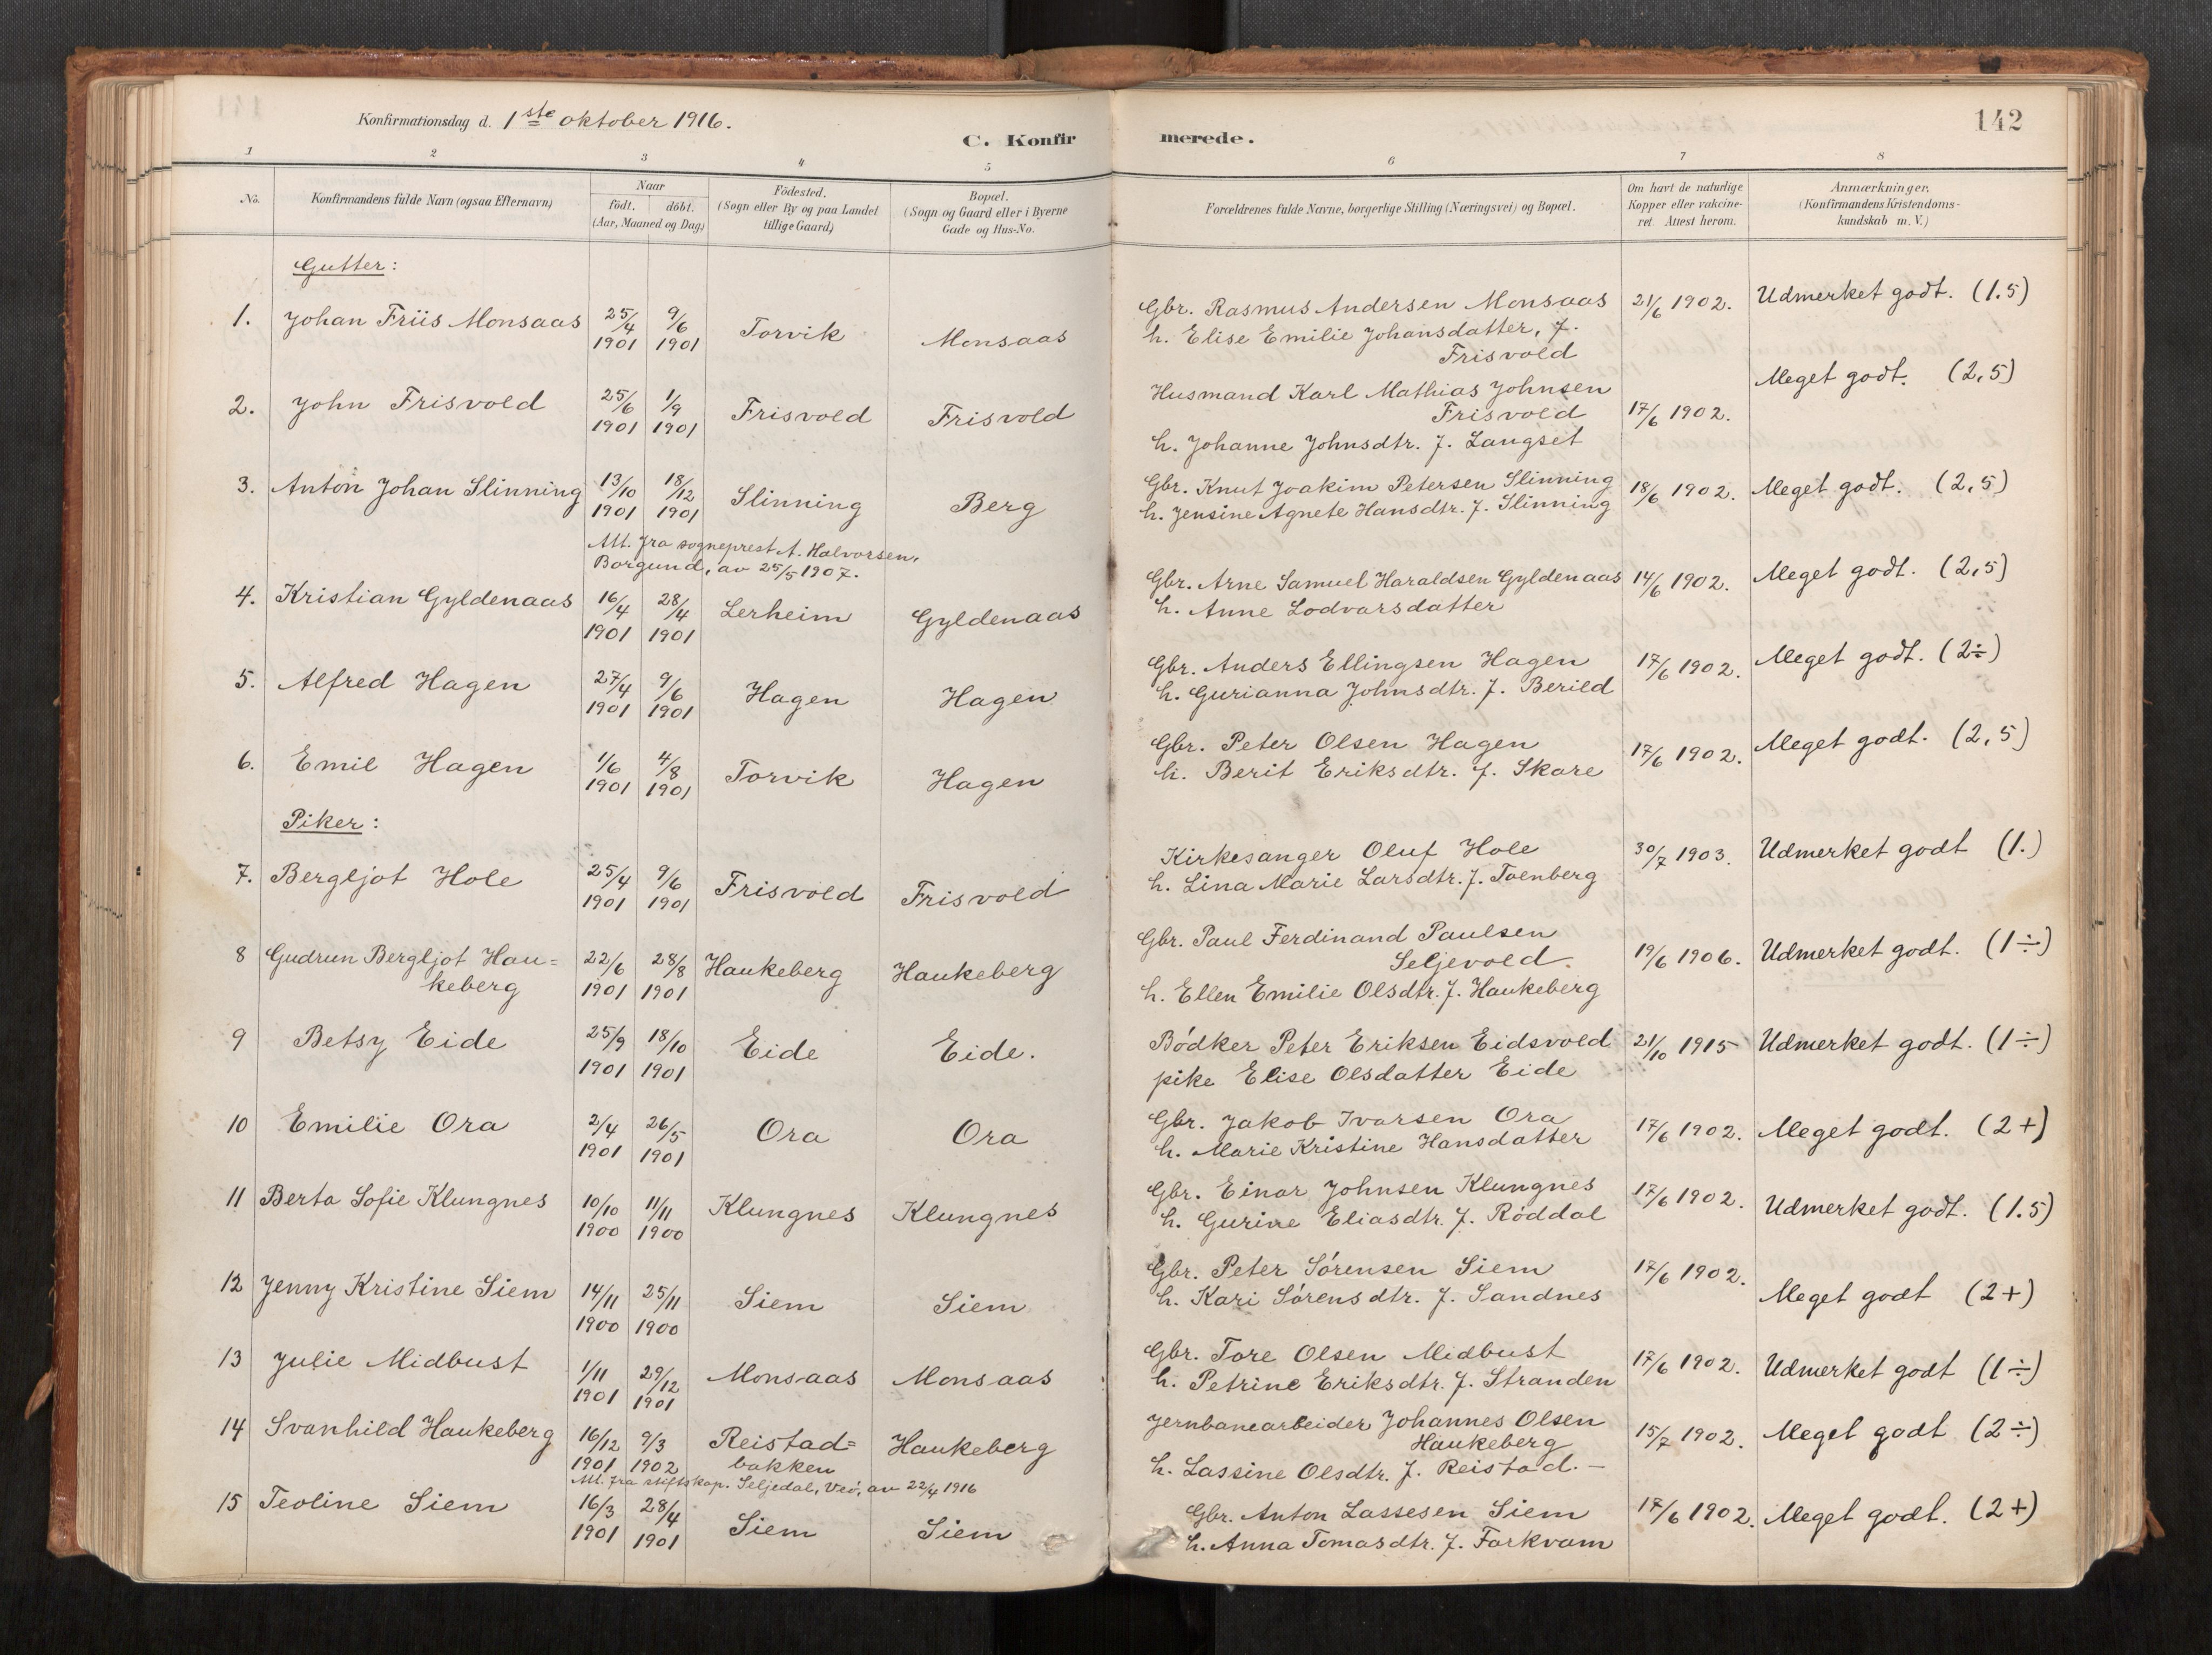 Konfirmationsdag d. 1ste oktober 1916.
C. Konfirmerede.
142
1 2 3 4 5 6 7 8
No.
Konfirmandens fulde Navn (ogsaa Efternavn)
Naar
födt. döbt.
(Aar, Maaned og Dag)
Födested.
(Sogn eller By og paa Landet
tillige Gaard)
Bopæl.
(Sogn og Gaard eller i Byerne
Gade og Hus-No.
Forældrenes fulde Navne, borgerlige Stilling (Næringsvei) og Bopæl.
Om havt de naturlige
Kopper eller vakcine-
ret. Attest herom.
Anmærkninger.
(Konfirmandens Kristendoms-
kundskab m. V.)
Gutter:
1. Johan Friis Monsaas 25/4 1901 9/6 1901 Torvik Monsaas
Gbr. Rasmus Andersen Monsaas 21/6 1902. Udmerket godt. (1.5)
h. Elise Emilie Johansdatter, f.
Frisvold
2. John Frisvold 25/6 1901 1/9 1901 Frisvold Frisvold
Husmand Karl Mathias Johnsen Meget godt. (2,5)
Frisvold 17/6 1902.
h. Johanne Johnsdtr. f. Langset
3. Anton Johan Slinning 13/10 1901 18/12 1901 Slinning Berg
Gbr. Knut Joakim Petersen Slinning 18/6 1902. Meget godt. (2,5)
h. Jensine Agnete Hansdtr. f. Slinning
Att. fra sogneprest A. Halvorsen,
Borgund, av 25/5 1907.
4. Kristian Gyldenaas 16/4 1901 28/4 1901 Lerheim Gyldenaas
Gbr. Arne Samuel Haraldsen Gyldenaas 14/6 1902. Meget godt. (2,5)
h. Anne Lodvarsdatter
5. Alfred Hagen 27/4 1901 9/6 1901 Hagen Hagen
Gbr. Anders Ellingsen Hagen 17/6 1902. Meget godt. (2÷)
h. Gurianna Johnsdtr. f. Berild
6. Emil Hagen 1/6 1901 4/8 1901 Torvik Hagen
Gbr. Peter Olsen Hagen 17/6 1902. Meget godt. (2,5)
h. Berit Eriksdtr. f. Skare
Piker:
7. Bergljot Hole 25/4 1901 9/6 1901 Frisvold Frisvold
Kirkesanger Oluf Hole 30/7 1903. Udmerket godt (1.)
h. Lina Marie Larsdtr. f. Toenberg
8 Gudrun Bergljot Hau=
keberg 22/6 1901 28/8 1901 Haukeberg Haukeberg
Gbr. Paul Ferdinand Paulsen
Seljevold. 19/6 1906. Udmerket godt. (1÷)
h. Ellen Emilie Olsdtr. f. Haukeberg
9 Betsy Eide 25/9 1901 18/10 1901 Eide Eide.
Bödker Peter Eriksen Eidsvold 21/10 1915 Udmerket godt. (1÷)
pike Elise Olsdatter Eide
10 Emilie Ora 2/4 1901 26/5 1901 Ora Ora
Gbr. Jakob Ivarsen Ora 17/6 1902. Meget godt. (2+)
h. Marie Kristine Hansdatter
11 Berta Sofie Klungnes 10/10 1900 11/11 1900 Klungnes Klungnes
Gbr. Einar Johnsen Klungnes 17/6 1902. Udmerket godt. (1.5)
h. Gurine Eliasdtr. f. Röddal
12 Jenny Kristine Siem 14/11 1900 25/11 1900 Siem Siem
Gbr. Peter Sörensen Siem 17/6 1902. Meget godt (2+)
h. Kari Sörensdtr. f. Sandnes
13 Julie Midbust 1/11 1901 29/12 1901 Monsaas Monsaas
Gbr. Tore Olsen Midbust 17/6 1902. Udmerket godt (1÷)
h. Petrine Eriksdtr. f. Stranden
14 Svanhild Haukeberg 16/12 1901 9/3 1902 Reistad=
bakken Haukeberg
Jernbanearbeider Johannes Olsen
Haukeberg 15/7 1902. Meget godt (2÷)
h. Lassine Olsdtr. f. Reistad.-
Att. fra stiftskap. Seljedal, Veö, av 22/4 1916
15 Teoline Siem 16/3 1901 28/4 1901 Siem Siem
Gbr. Anton Lassesen Siem 17/6 1902. Meget godt. (2+)
h. Anna Tomasdtr. f. Farkvam